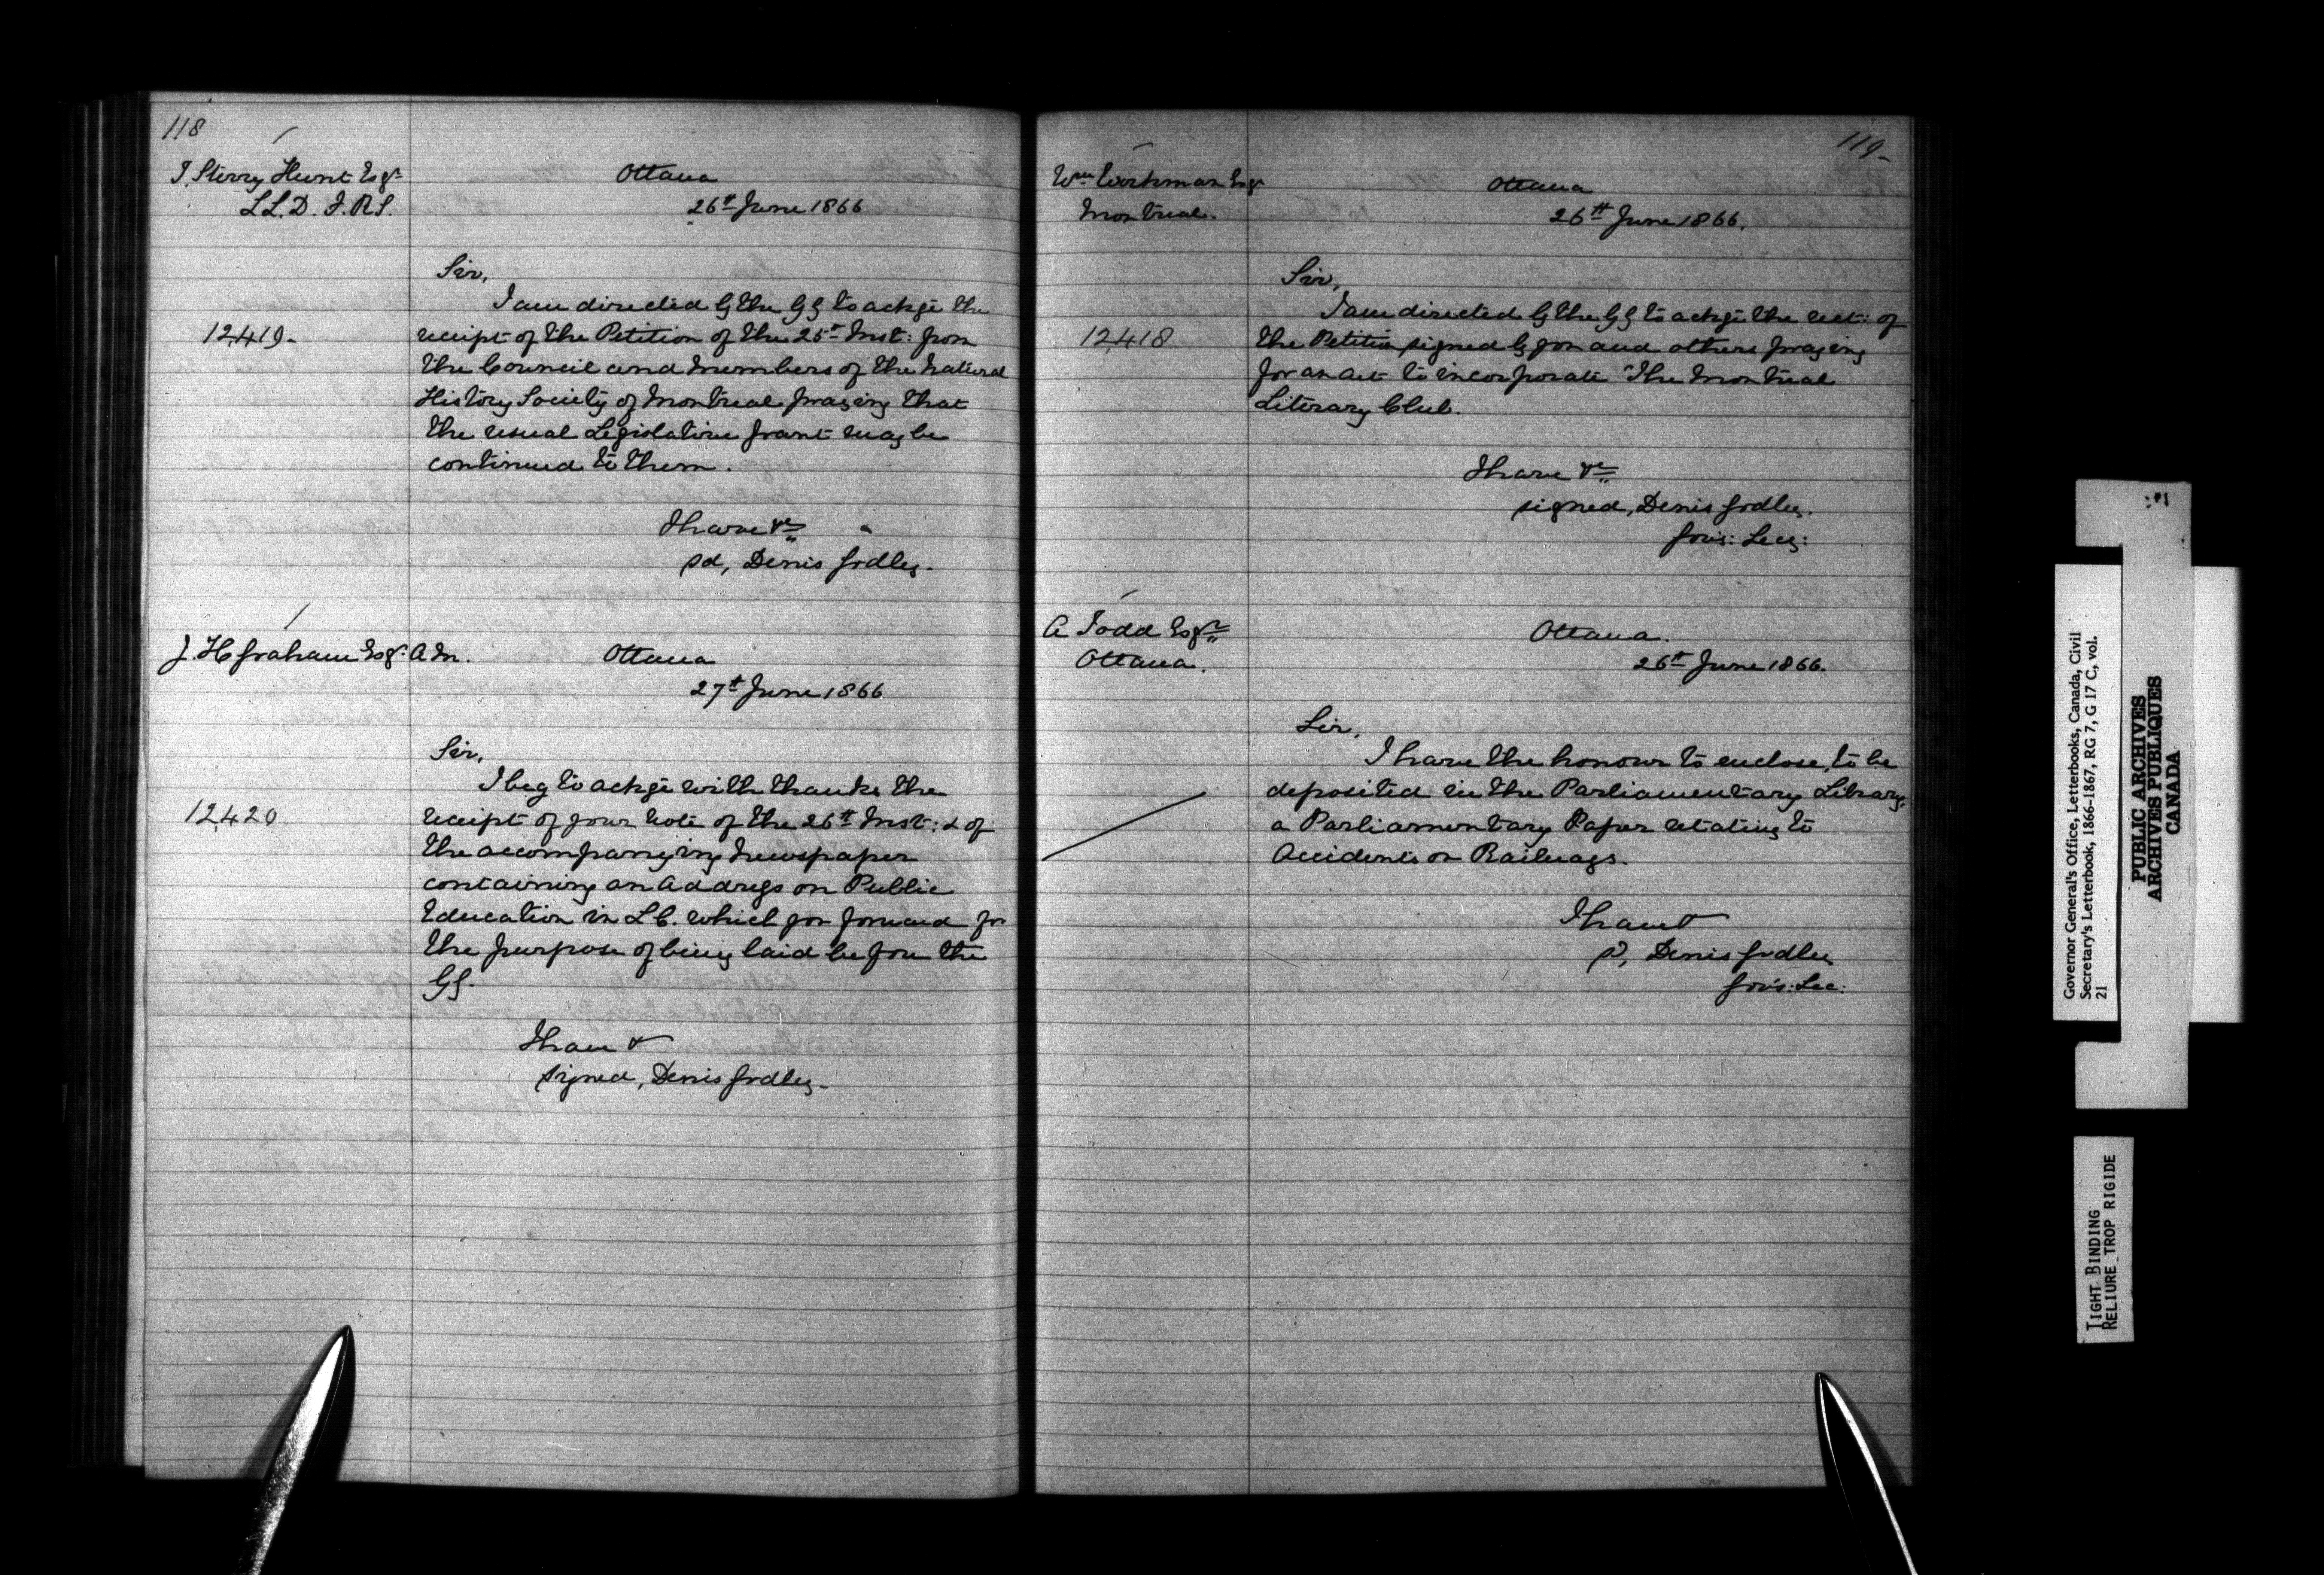 118
T. Sterry Hunt Esqr
LL.D. F.R.S.
Ottawa
26th June 1866
Sir,
I am directed by the GG to ackge the
12,419-
receipt of the Petition of the 25th Inst: from
the Council and Members of the Natural
History Society of Montreal praying that
the usual Legislative grant may be
continued to them.
I have &c
sd, Denis Godley.
J. H Graham Esqr A.M.
Ottawa
27th June 1866
Sir,
I beg to ackge with thanks the
12,420
receipt of your note of the 26th Inst: & of
the accompanying Newspaper
containing an Address on Public
Education in L C. which you forward for
the purpose of being laid before the
GG.
I have &
signed, Denis Godley-
119-
Wm Workman Esqr
Montreal.
Ottawa
26th June 1866.
Sir,
I am directed by the GG to ackge the rect: of
12,418
the Petition signed by you and others praying
for an act to incorporate "The Montreal
Literary Club.
I have &c
signed, Denis Godley.
Govr's: Secy:
A Todd Esqr
Ottawa.
Ottawa.
26th June 1866.
Sir,
I have the honour to enclose, to be
deposited in the Parliamentary Library,
a Parliamentary Paper relating to
Accidents on Railways.
I have &
sd, Denis Godley
Gov's: Sec:
Governor General's Office, Letterbooks, Canada, Civil
Secretary's Letterbook, 1866-1867, RG 7, G 17 C, vol.
21
PUBLIC ARCHIVES
ARCHIVES PUBLIQUES
CANADA
TIGHT BINDING
RELIURE TROP RIGIDE